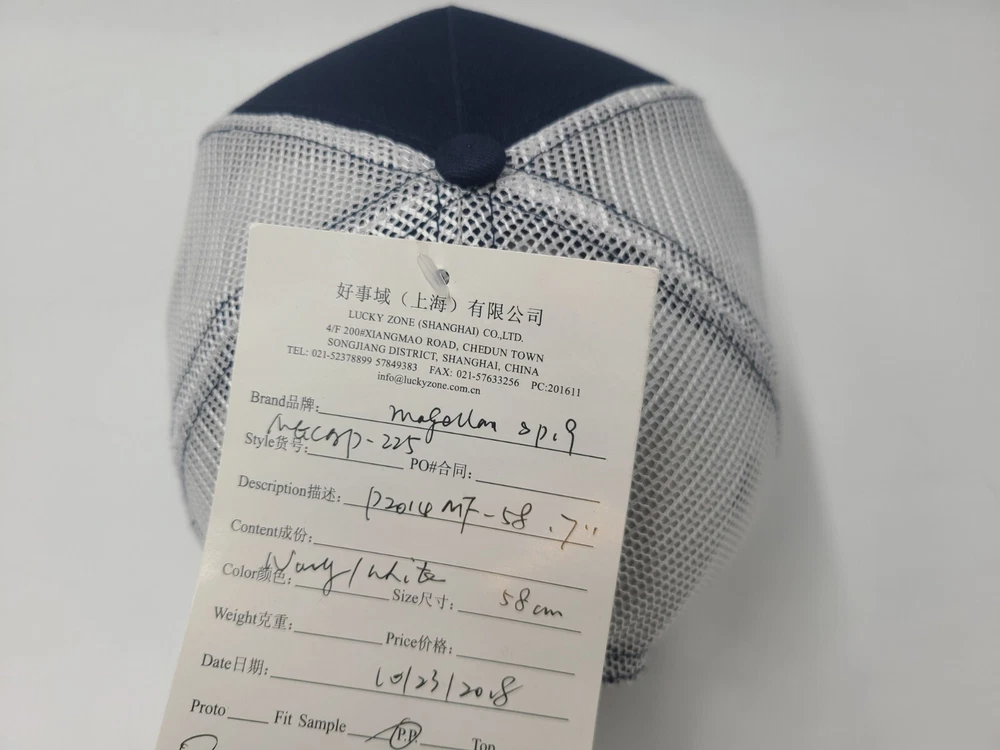 好事域（上海）有限公司
LUCKY ZONE (SHANGHAI) CO.,LTD.
4/F 200#XIANGMAO ROAD, CHEDUN TOWN
SONGJIANG DISTRICT, SHANGHAI, CHINA
TEL: 021-52378899 57849383 FAX: 021-57633256 PC:201611
info@luckyzone.com.cn
Brand品牌: Magellan sp.9
Style货号: -225 PO#合同:
Description描述: P2014 MF-58 .7"
Content成份:
Color颜色: Navy/white Size尺寸: 58cm
Weight克重: Price价格:
Date日期: 10/23/2018
Proto Fit Sample P.P. Top